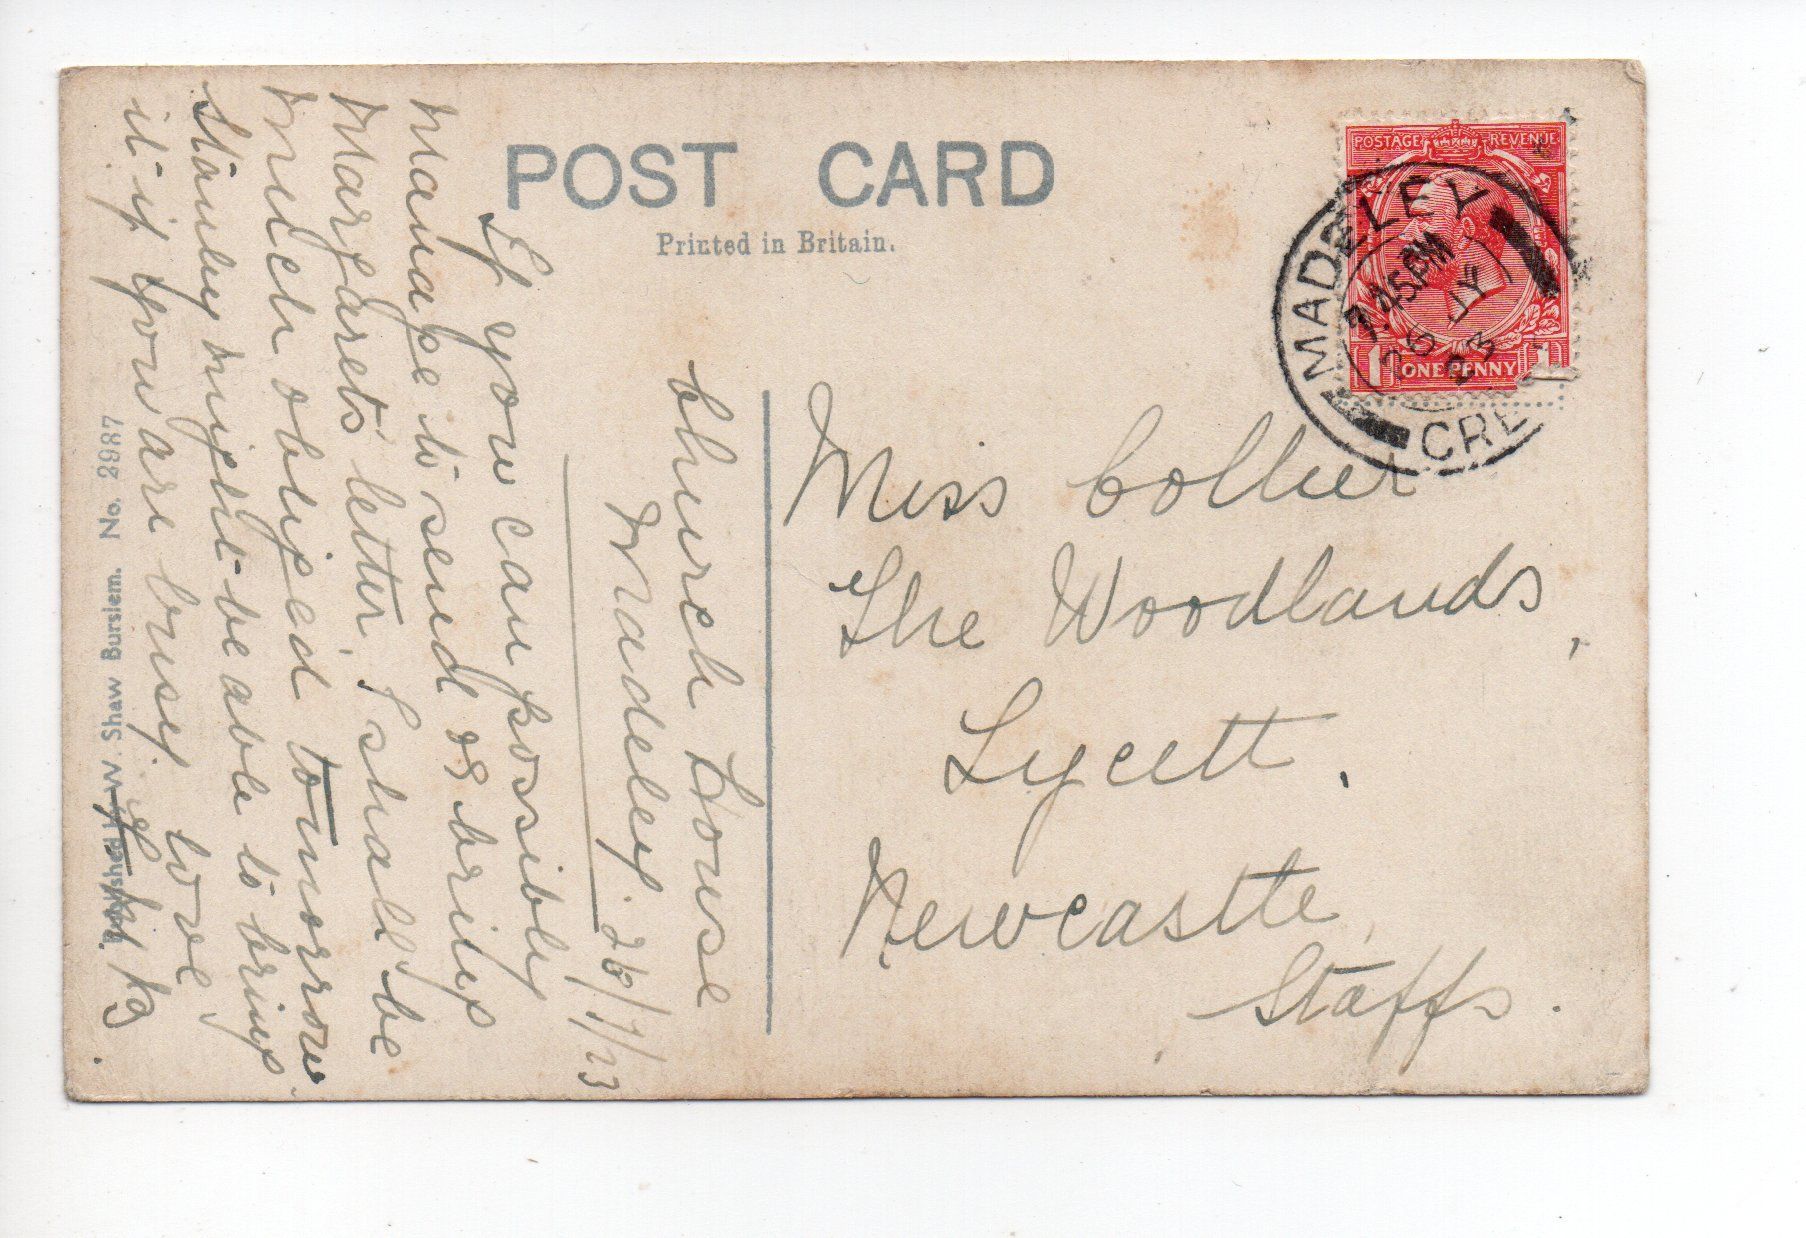 POST CARD
Printed in Britain.
POSTAGE REVENUE
1 ONE PENNY 1
MADELEY
7.45 PM
26 JY
23
CRE
Miss Collier
The Woodlands,
Lycett.
Newcastle
Staffs.
Church House
Madeley. 26/7/23
If you can possibly
manage to send or bring
Margarets letter, I shall be
much obliged tomorrow.
Stanley might be able to bring
it if you are busy love
Published by W. Shaw Burslem. No. 2987